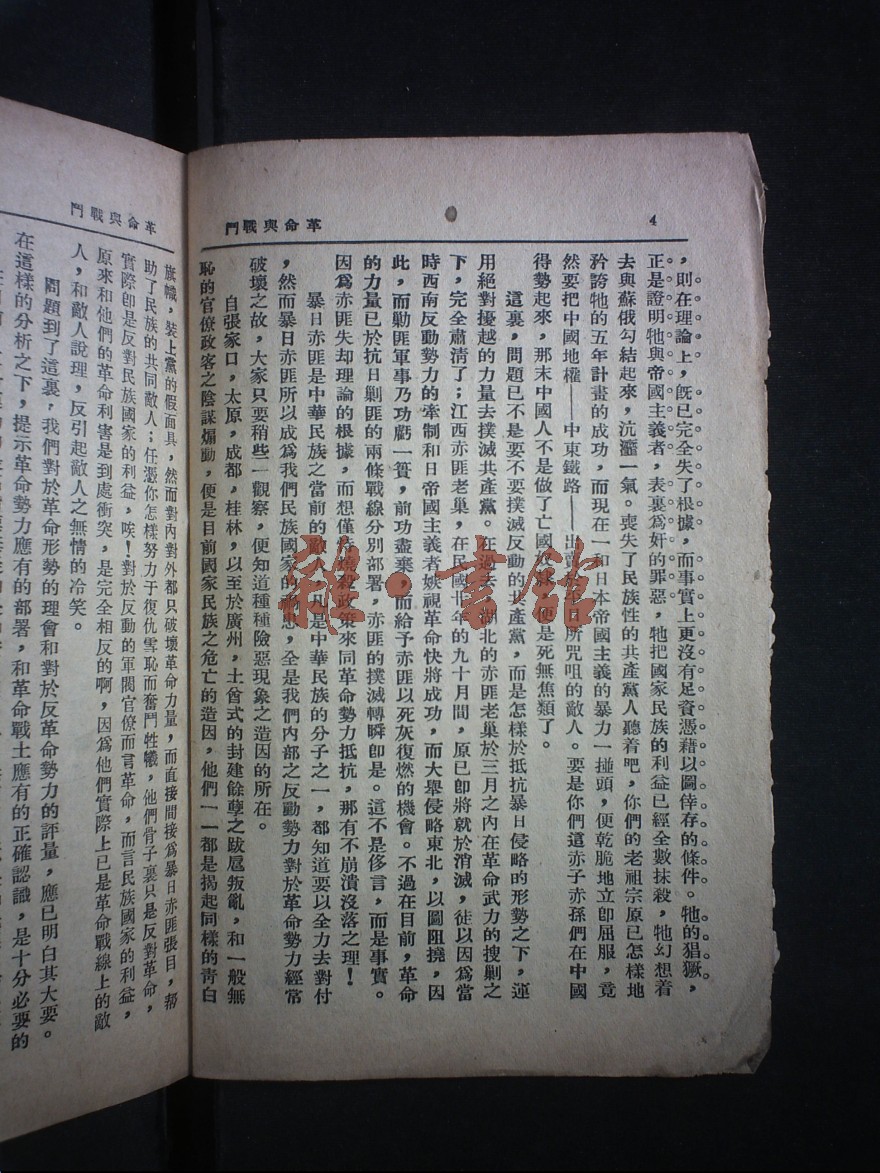 4
革命與戰鬥
，則在理論上，旣已完全失了根據，而事實上更沒有足資憑藉以圖倖存的條件。牠的猖獗，
正是證明牠與帝國主義者，表裏爲奸的罪惡，牠把國家民族的利益已經全數抹殺，牠幻想着
去與蘇俄勾結起來，沆瀣一氣。喪失了民族性的共產黨人聽着吧，你們的老祖宗原已怎樣地
矜誇牠的五年計畫的成功，而現在一和日本帝國主義的暴力一掽頭，便乾脆地立卽屈服，竟
然要把中國地權——中東鐵路——出賣於平日所咒咀的敵人。要是你們這赤子赤孫們在中國
得勢起來，那末中國人不是做了亡國奴隸，便是死無焦類了。
這裏，問題已不是要不要撲滅反動的共產黨，而是怎樣於抵抗暴日侵略的形勢之下，運
用絕對擾越的力量去撲滅共產黨。在過去，湖北的赤匪老巢於三月之內在革命武力的搜剿之
下，完全肅清了；江西赤匪老巢，在民國廿年的九十月間，原已卽將就於消滅，徒以因爲當
時西南反動勢力的牽制和日帝國主義者嫉視革命快將成功，而大舉侵略東北，以圖阻撓，因
此，而勦匪軍事乃功虧一簣，前功盡棄，而給予赤匪以死灰復燃的機會。不過在目前，革命
的力量已於抗日剿匪的兩條戰線分別部署，赤匪的撲滅轉瞬卽是。這不是侈言，而是事實。
因爲赤匪失却理論的根據，而想僅恃燒殺政策來同革命勢力抵抗，那有不崩潰沒落之理！
暴日赤匪是中華民族之當前的敵人，凡是中華民族的分子之一，都知道要以全力去對付
，然而暴日赤匪所以成爲我們民族國家的禍患，全是我們內部之反動勢力對於革命勢力經常
破壞之故，大家只要稍些一觀察，便知道種種險惡現象之造因的所在。
自張家口，太原，成都，桂林，以至於廣州，土酋式的封建餘孽之跋扈叛亂，和一般無
恥的官僚政客之陰謀煽動，便是目前國家民族之危亡的造因，他們一一都是揭起同樣的靑白
革命與戰鬥
旗幟，裝上黨的假面具，然而對內對外都只破壞革命力量，而直接間接爲暴日赤匪張目，帮
助了民族的共同敵人；任憑你怎樣努力于復仇雪恥而奮鬥牲犧，他們骨子裏只是反對革命，
實際卽是反對民族國家的利益，唉！對於反動的軍閥官僚而言革命，而言民族國家的利益，
原來和他們的革命利害是到處衝突，是完全相反的啊，因爲他們實際上已是革命戰線上的敵
人，和敵人說理，反引起敵人之無情的冷笑。
問題到了這裏，我們對於革命形勢的理會和對於反革命勢力的評量，應已明白其大要。
在這樣的分析之下，提示革命勢力應有的部署，和革命戰士應有的正確認識，是十分必要的
雜·書館